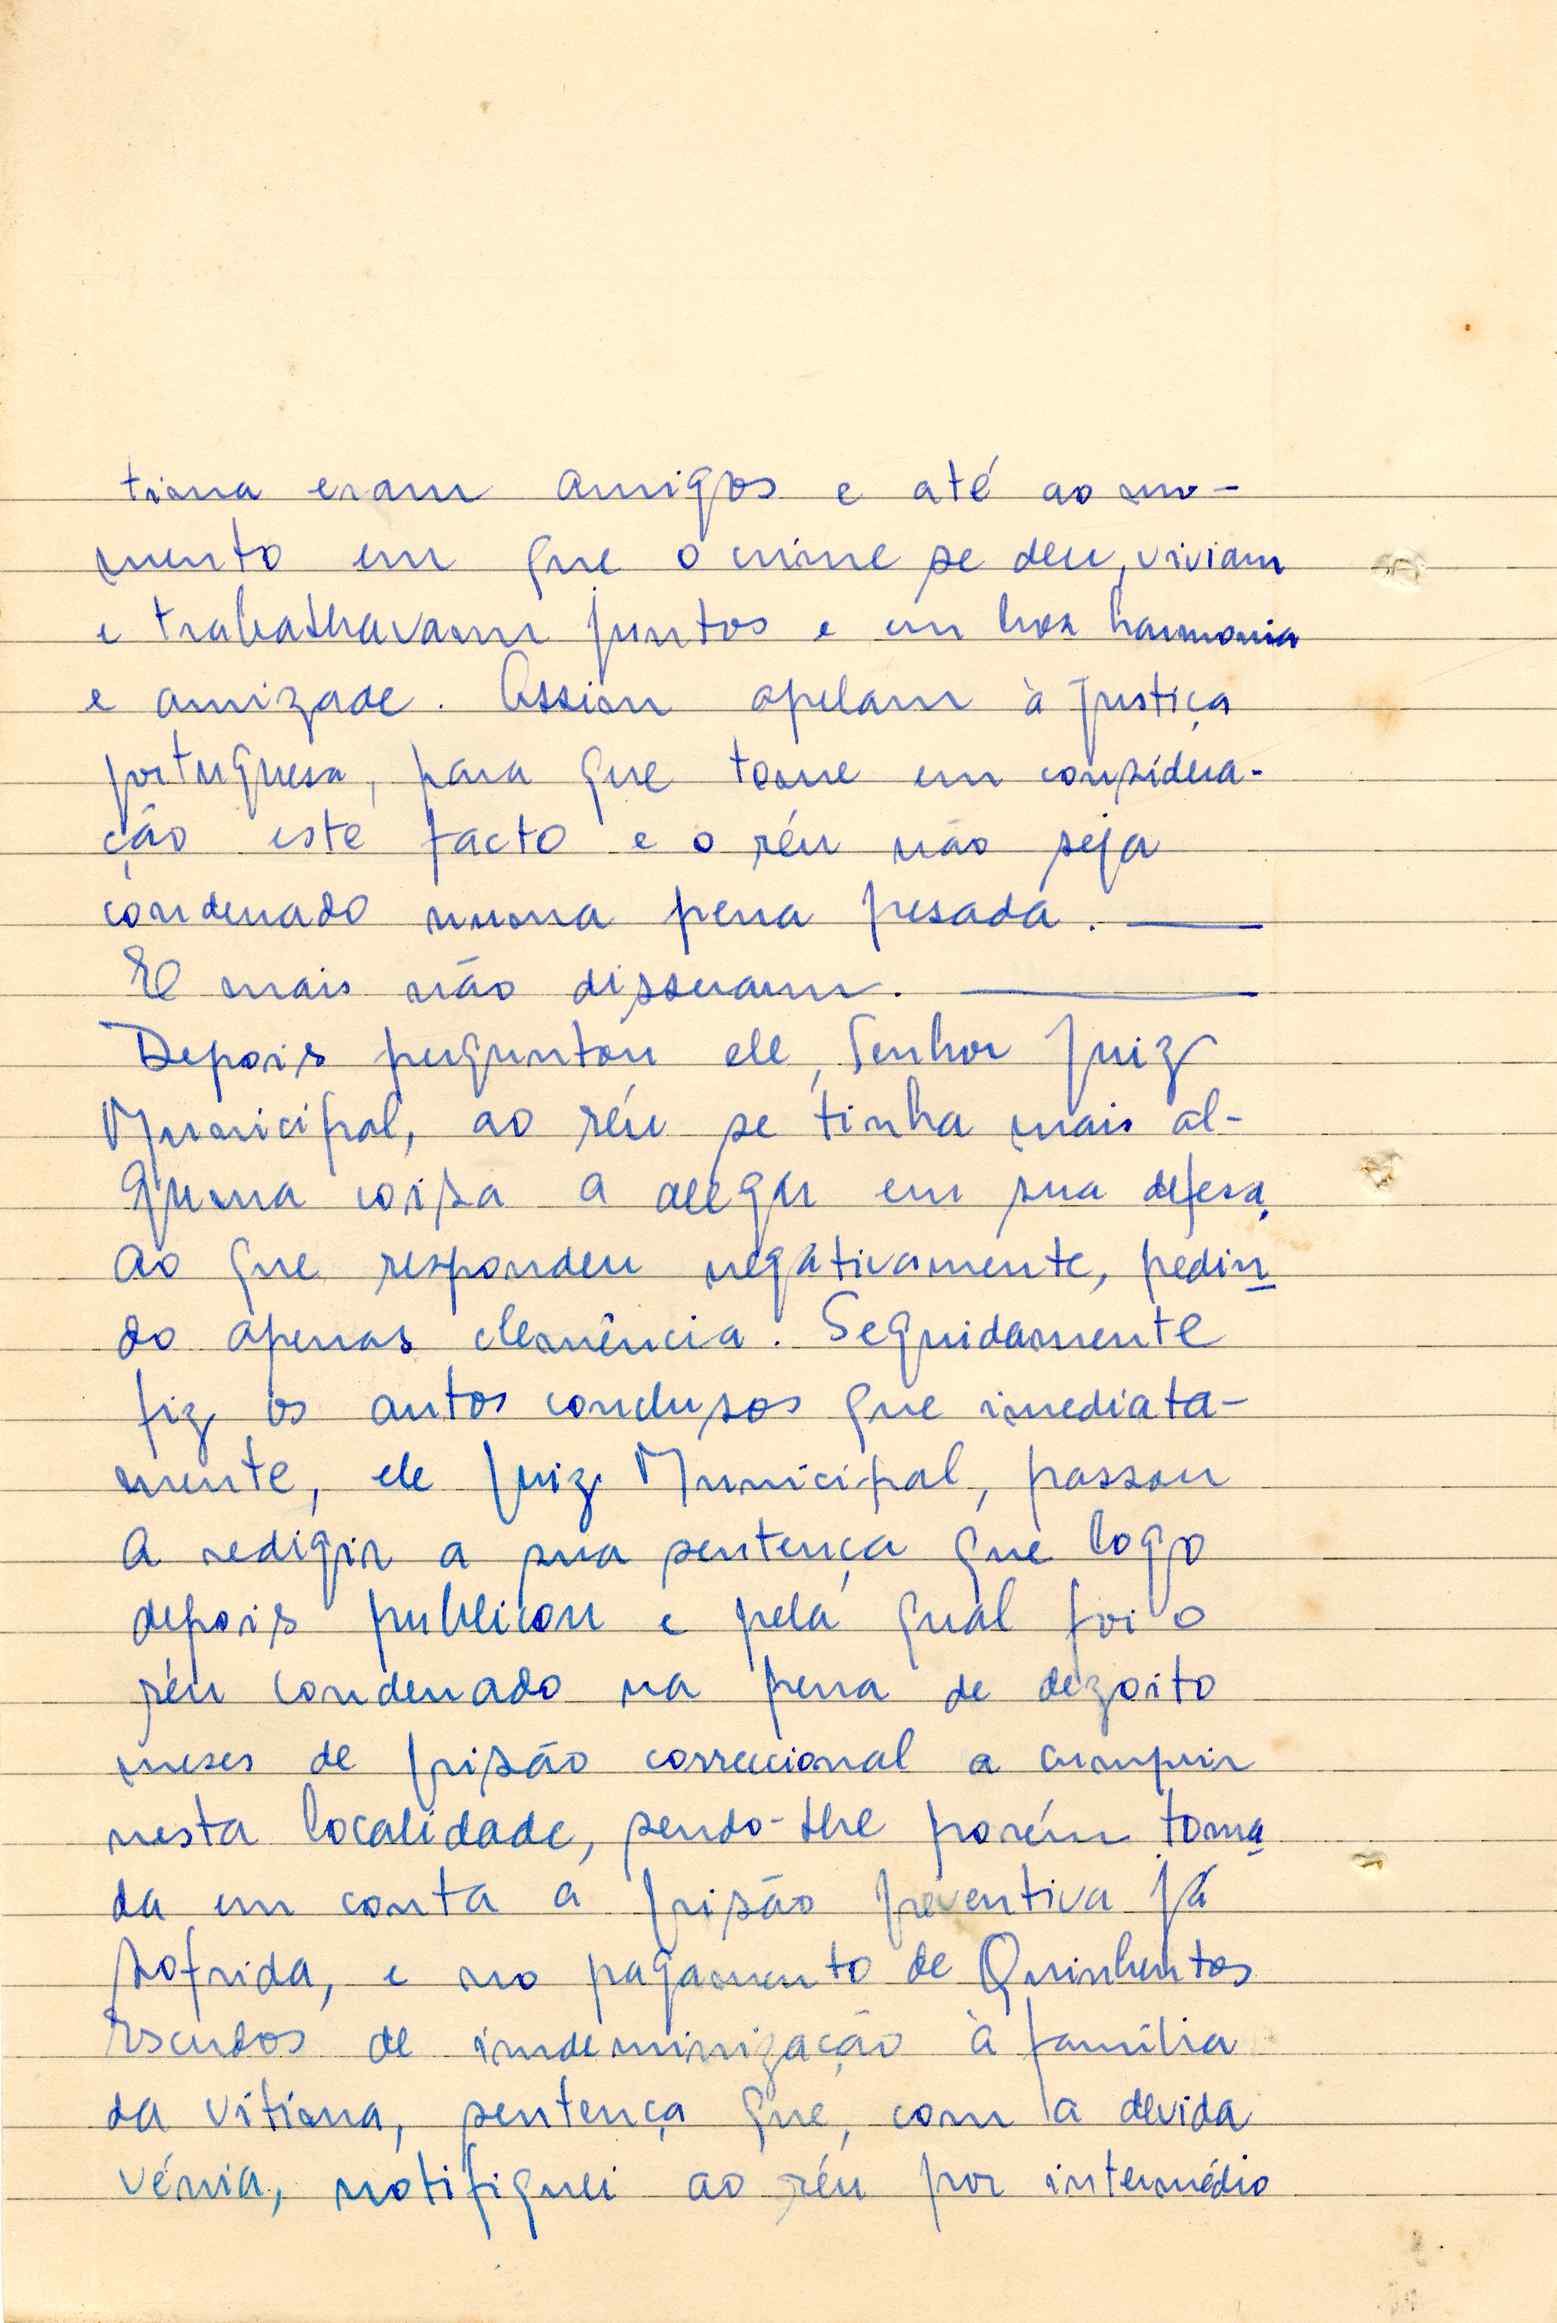 tima eram amigos e até ao mo-
mento em que o crime se deu, viviam
e trabalhavam juntos e em boa harmonia
e amizade. Assim apelam à Justiça
portuguesa, para que tome em considera-
ção este facto e o réu não seja
condenado numa pena pesada. ——
E mais não disseram. ————
Depois perguntou ele, Senhor Juiz
Municipal, ao réu se tinha mais al-
guma coisa a alegar em sua defesa,
ao que respondeu negativamente, pedin
do apenas clemência. Seguidamente
fiz os autos conclusos que imediata-
mente, ele Juiz Municipal, passou
a redigir a sua sentença que logo
depois publicou e pela qual foi o
réu condenado na pena de dezoito
meses de prisão correccional a cumprir
nesta localidade, sendo-lhe porém toma
da em conta a prisão preventiva já
sofrida, e no pagamento de Quinhentos
Escudos de indeminização à família
da vitima, sentença que, com a devida
vénia, notifiquei ao réu por intermédio